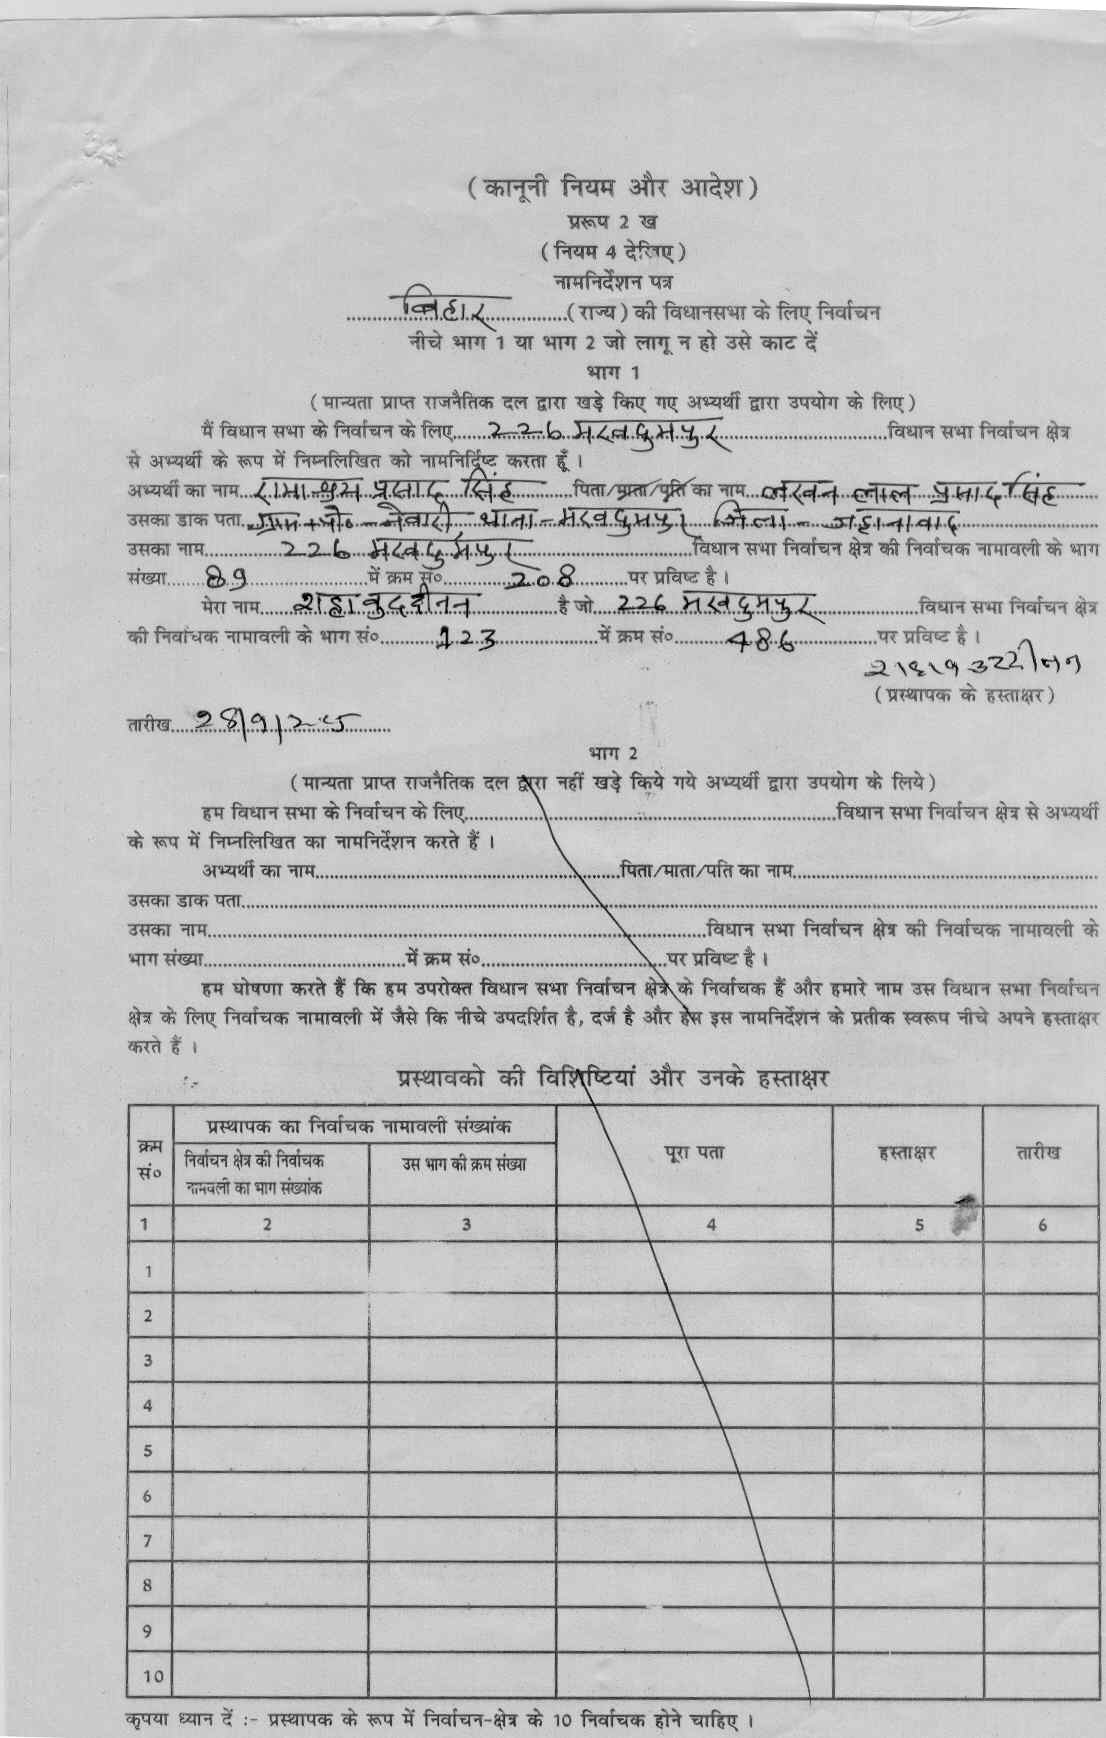 ( कानूनी नियम और आदेश )
प्ररूप 2 ख
( नियम 4 देखिए )
नामनिर्देशन पत्र
बिहार (राज्य) की विधानसभा के लिए निर्वाचन
नीचे भाग 1 या भाग 2 जो लागू न हो उसे काट दें
भाग 1
(मान्यता प्राप्त राजनैतिक दल द्वारा खड़े किए गए अभ्यर्थी द्वारा उपयोग के लिए)
मैं विधान सभा के निर्वाचन के लिए 226 मखदुमपुर विधान सभा निर्वाचन क्षेत्र
से अभ्यर्थी के रूप में निम्नलिखित को नामनिर्दिष्ट करता हूँ ।
अभ्यर्थी का नाम रामाश्रय प्रसाद सिंह पिता/माता/पति का नाम लखन लाल प्रसाद सिंह
उसका डाक पता ग्राम+पो०-नेवारी थाना-मखदुमपुर जिला-जहानाबाद
उसका नाम 226 मखदुमपुर विधान सभा निर्वाचन क्षेत्र की निर्वाचक नामावली के भाग
संख्या 89 में क्रम सं० 208 पर प्रविष्ट है ।
मेरा नाम शहाबुद्दीनन है जो 226 मखदुमपुर विधान सभा निर्वाचन क्षेत्र
की निर्वाचक नामावली के भाग सं० 123 में क्रम सं० 486 पर प्रविष्ट है ।
(प्रस्थापक के हस्ताक्षर)
तारीख 28/9/2.5
भाग 2
(मान्यता प्राप्त राजनैतिक दल द्वारा नहीं खड़े किये गये अभ्यर्थी द्वारा उपयोग के लिये)
हम विधान सभा के निर्वाचन के लिए विधान सभा निर्वाचन क्षेत्र से अभ्यर्थी
के रूप में निम्नलिखित का नामनिर्देशन करते हैं ।
अभ्यर्थी का नाम पिता/माता/पति का नाम
उसका डाक पता
उसका नाम विधान सभा निर्वाचन क्षेत्र की निर्वाचक नामावली के
भाग संख्या में क्रम सं० पर प्रविष्ट है ।
हम घोषणा करते हैं कि हम उपरोक्त विधान सभा निर्वाचन क्षेत्र के निर्वाचक हैं और हमारे नाम उस विधान सभा निर्वाचन
क्षेत्र के लिए निर्वाचक नामावली में जैसे कि नीचे उपदर्शित है, दर्ज है और हम इस नामनिर्देशन के प्रतीक स्वरूप नीचे अपने हस्ताक्षर
करते हैं ।
प्रस्थावको की विशिष्टियां और उनके हस्ताक्षर
क्रम सं० प्रस्थापक का निर्वाचक नामावली संख्यांक पूरा पता हस्ताक्षर तारीख
निर्वाचन क्षेत्र की निर्वाचक उस भाग की क्रम संख्या
नामवली का भाग संख्यांक
1 2 3 4 5 6
1
2
3
4
5
6
7
8
9
10
कृपया ध्यान दें :- प्रस्थापक के रूप में निर्वाचन-क्षेत्र के 10 निर्वाचक होने चाहिए ।